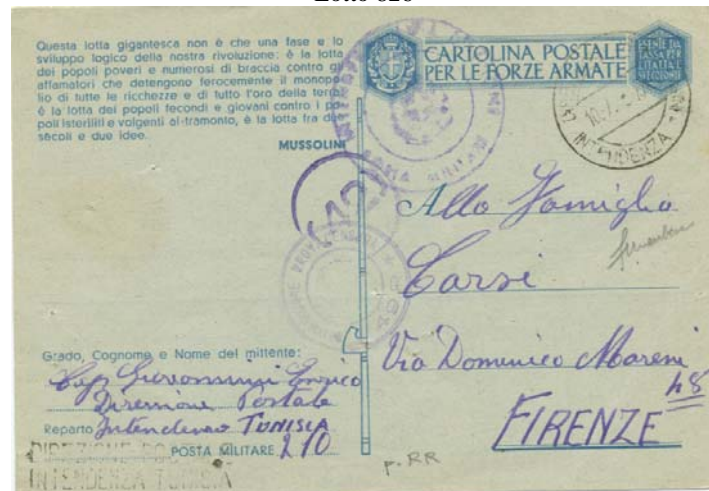 Questa lotta gigantesca non è che una fase e lo
sviluppo logico della nostra rivoluzione: è la lotta
dei popoli poveri e numerosi di braccia contro gli
affamatori che detengono ferocemente il monopo-
lio di tutte le ricchezze e di tutto l'oro della terra;
è la lotta dei popoli fecondi e giovani contro i po-
poli isteriliti e volgenti al tramonto, è la lotta fra due
secoli e due idee.
MUSSOLINI
CARTOLINA POSTALE
PER LE FORZE ARMATE
ESENTE DA
TASSA PER
L'ITALIA E
INTENDENZA
Alla Famiglia
Carsi
Via Domenico
48
FIRENZE
Grado, Cognome e Nome del mittente:
Cap. Enrico
Direzione Postale
Reparto Intendenza TUNISIA
POSTA MILITARE 210
DIREZIONE
INTENDENZA TUNISIA
p. RR